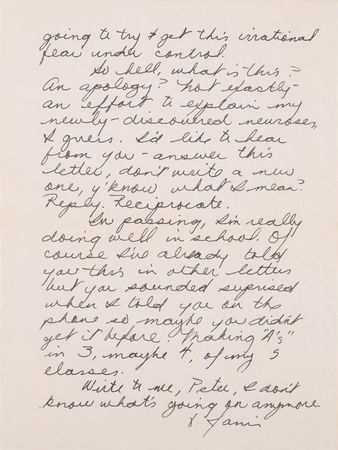 going to try & get this irrational
fear under control.
So hell, what is this =
An apology? Not exactly -
an effort to explain my
newly-discovered neuroses,
I guess. I'd like to hear
from you - answer this
letter, don't write a new
one, y'know what I mean?
Reply. Reciprocate.
In passing, I'm really
doing well in school. Of
course I've already told
you this in other letters
but you sounded suprised
when I told you on the
phone so maybe you didn't
get it before. Making "A's"
in 3, maybe 4, of my 5
classes.
Write to me, Peter, I don't
know what's going on anymore.
X Janis